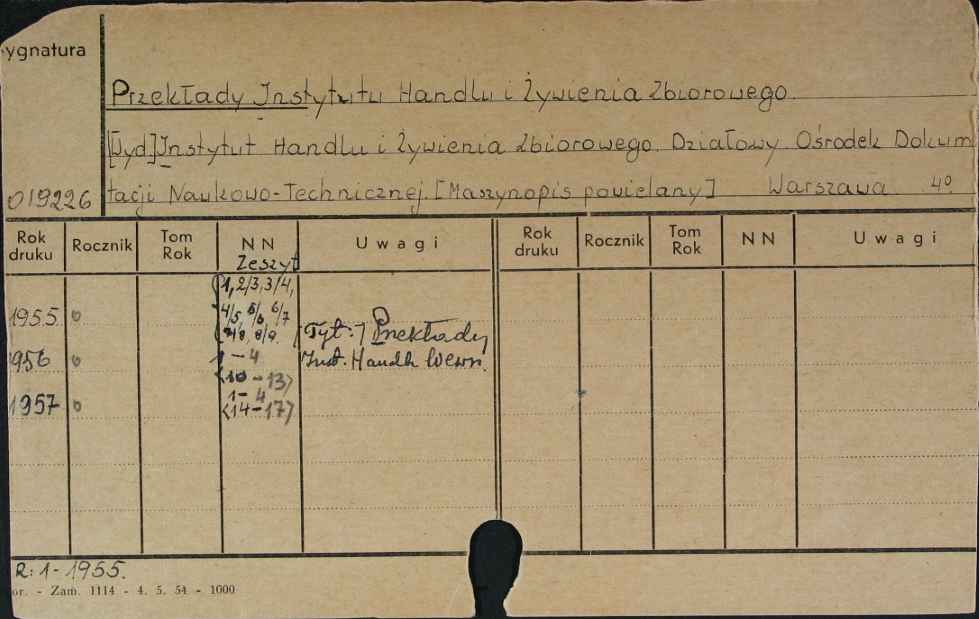 ygnatura
Przekłady Instytutu Handlu i Żywienia Zbiorowego.
[Wyd.] Instytut Handlu i Żywienia Zbiorowego. Działowy Ośrodek Dokum
019226 tacji Naukowo-Technicznej. [Maszynopis powielany] Warszawa 4°
Rok druku Rocznik Tom Rok NN Zeszyt Uwagi Rok druku Rocznik Tom Rok NN Uwagi
1, 2/3, 3/4,
1955 o 4/5, 5/6, 6/7
7/8, 8/9. Tyt: Przekłady
1956 o 1-4 Inst. Handlu Wewn.
<10-13>
1957 o 1-4
<14-17>
R: 1-1955.
or. - Zam. 1114 - 4. 5. 54 - 1000